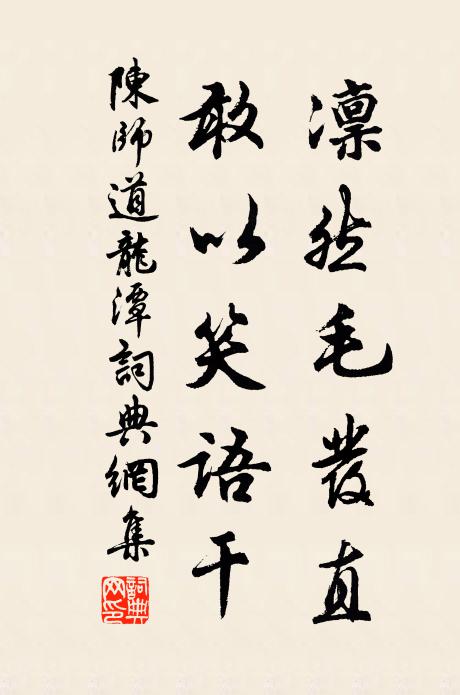 凛然毛發直
敢以笑語干
陳師道龍潭詞典網集
詞典
网印